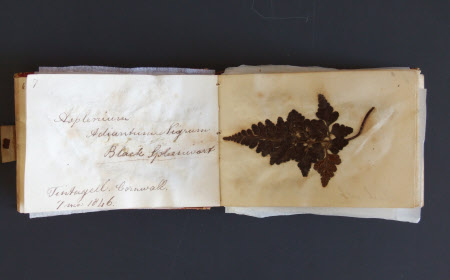 Asplenium
Adiantum nigrum
Black Spleenwort
Cornwall.
1846.